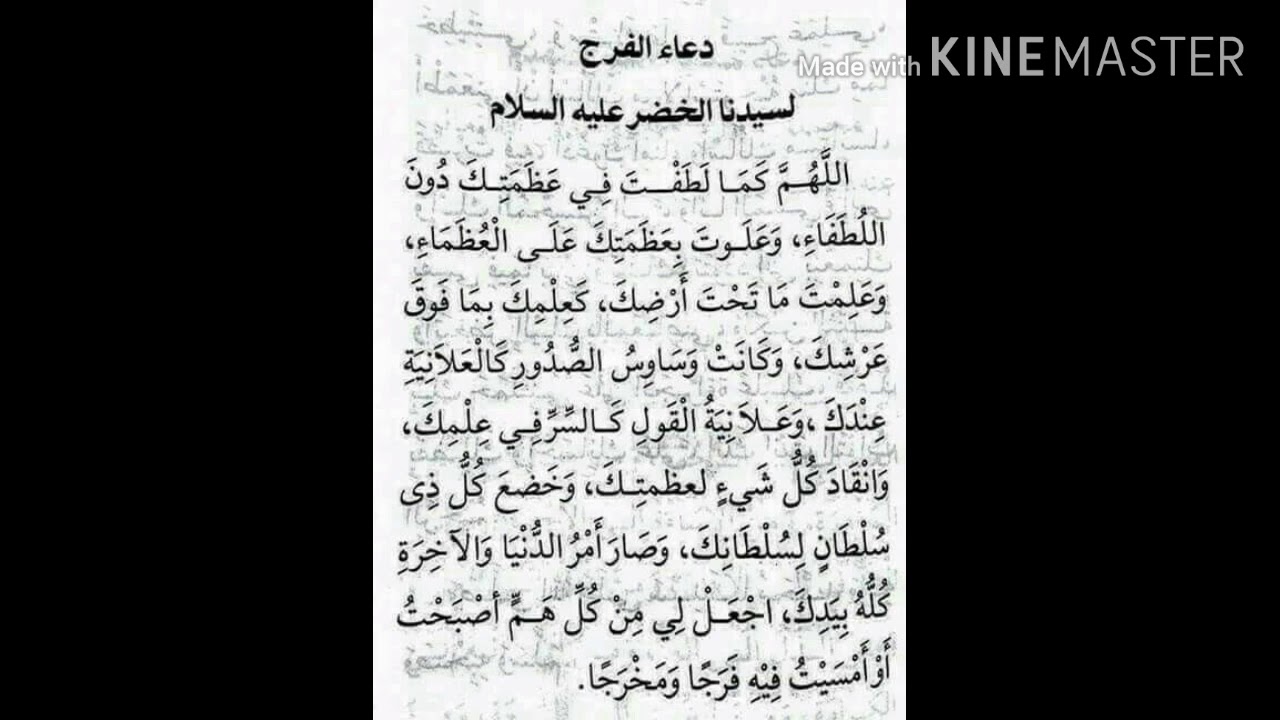 Made with KINEMASTER
دعاء الفرج
لسيدنا الخضر عليه السلام
اللَّهُمَّ كَمَا لَطَفْتَ فِي عَظَمَتِكَ دُونَ
اللُطَفَاءِ، وَعَلَوتَ بِعَظَمَتِكَ عَلَى الْعُظَمَاءِ،
وَعَلِمْتَ مَا تَحْتَ أَرْضِكَ، كَعِلْمِكَ بِمَا فَوقَ
عَرْشِكَ، وَكَانَتْ وَسَاوِسُ الصُّدُورِ كَالْعَلاَنِيَةِ
عِنْدَكَ ،وَعَلاَنِيَةُ الْقَولِ كَالسِّرِّ فِي عِلْمِكَ،
وَانْقَادَ كُلُّ شَيءٍ لعظمتِكَ، وَخَضعَ كُلُّ ذِى
سُلْطَانٍ لِسُلْطَانِكَ، وَصَارَ أَمْرُ الدُّنْيَا وَالآخِرَةِ
كُلُّهُ بِيَدِكَ، اجْعَلْ لِي مِنْ كُلِّ هَمٍّ أصْبَحْتُ
أَوْ أَمْسَيْتُ فِيْهِ فَرَجًا وَمَخْرَجًا.